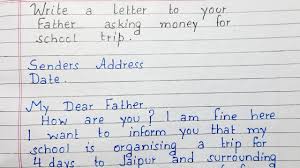 Write a letter to your
Father asking money for
school trip.
Senders Address
Date.
My Dear Father
How are you? I am fine here
I want to inform you that my
school is organising a trip for
4 days to Jaipur and surrounding